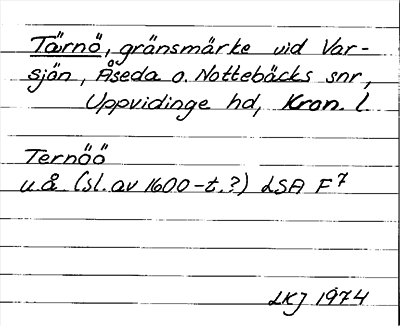 Tärnö, gränsmärke vid Var-
sjön, Åseda o. Nottebäcks snr,
Uppvidinge hd, Kron. l
Ternöö
u.å. (sl. av 1600-t.?) LSA F7
LKJ 1974